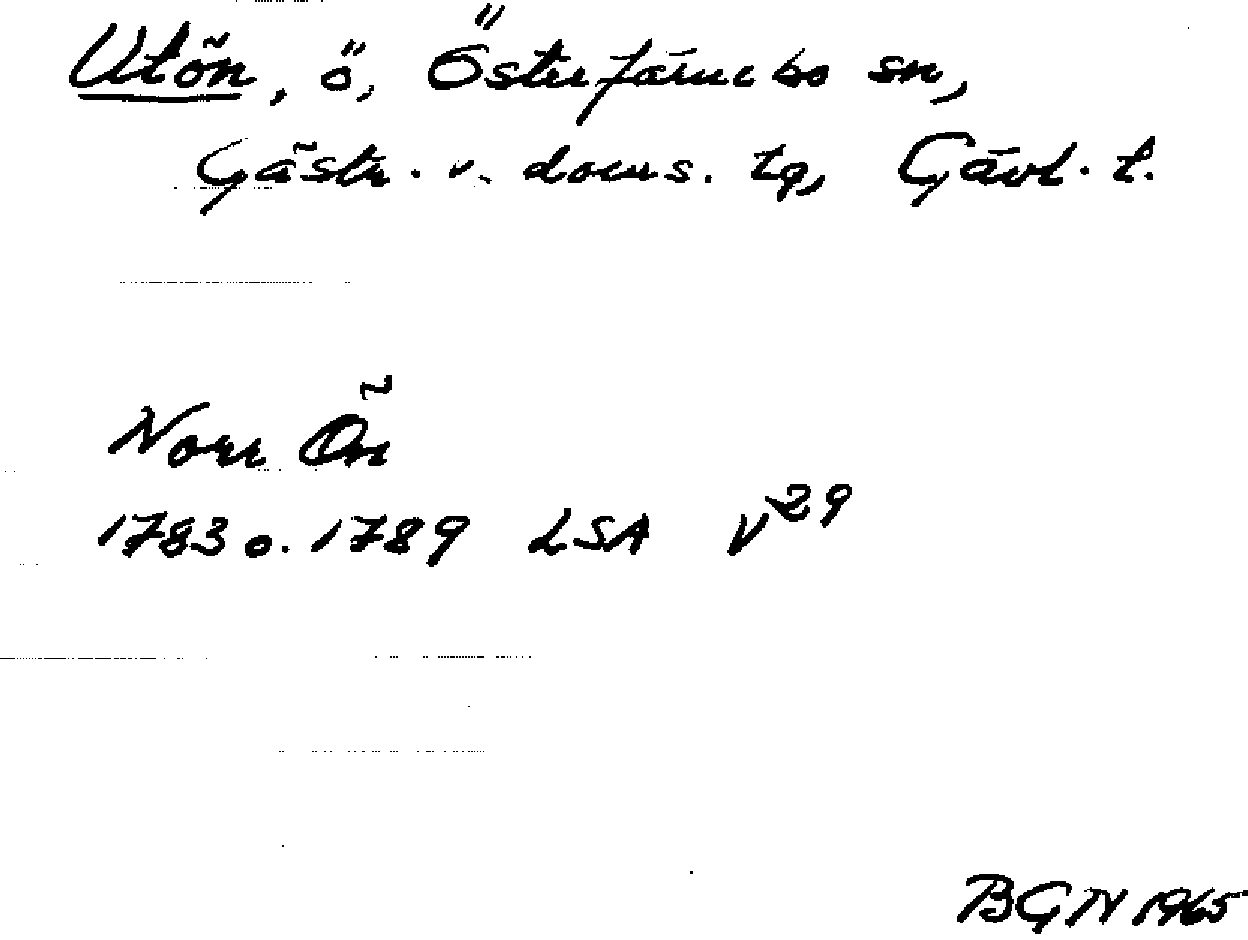 Utön, ö, Österfärnebo sn,
Gästr. v. doms. tg, Gävl. l.
Norr Ön
1783 o. 1789 LSA V29
BGN 1965